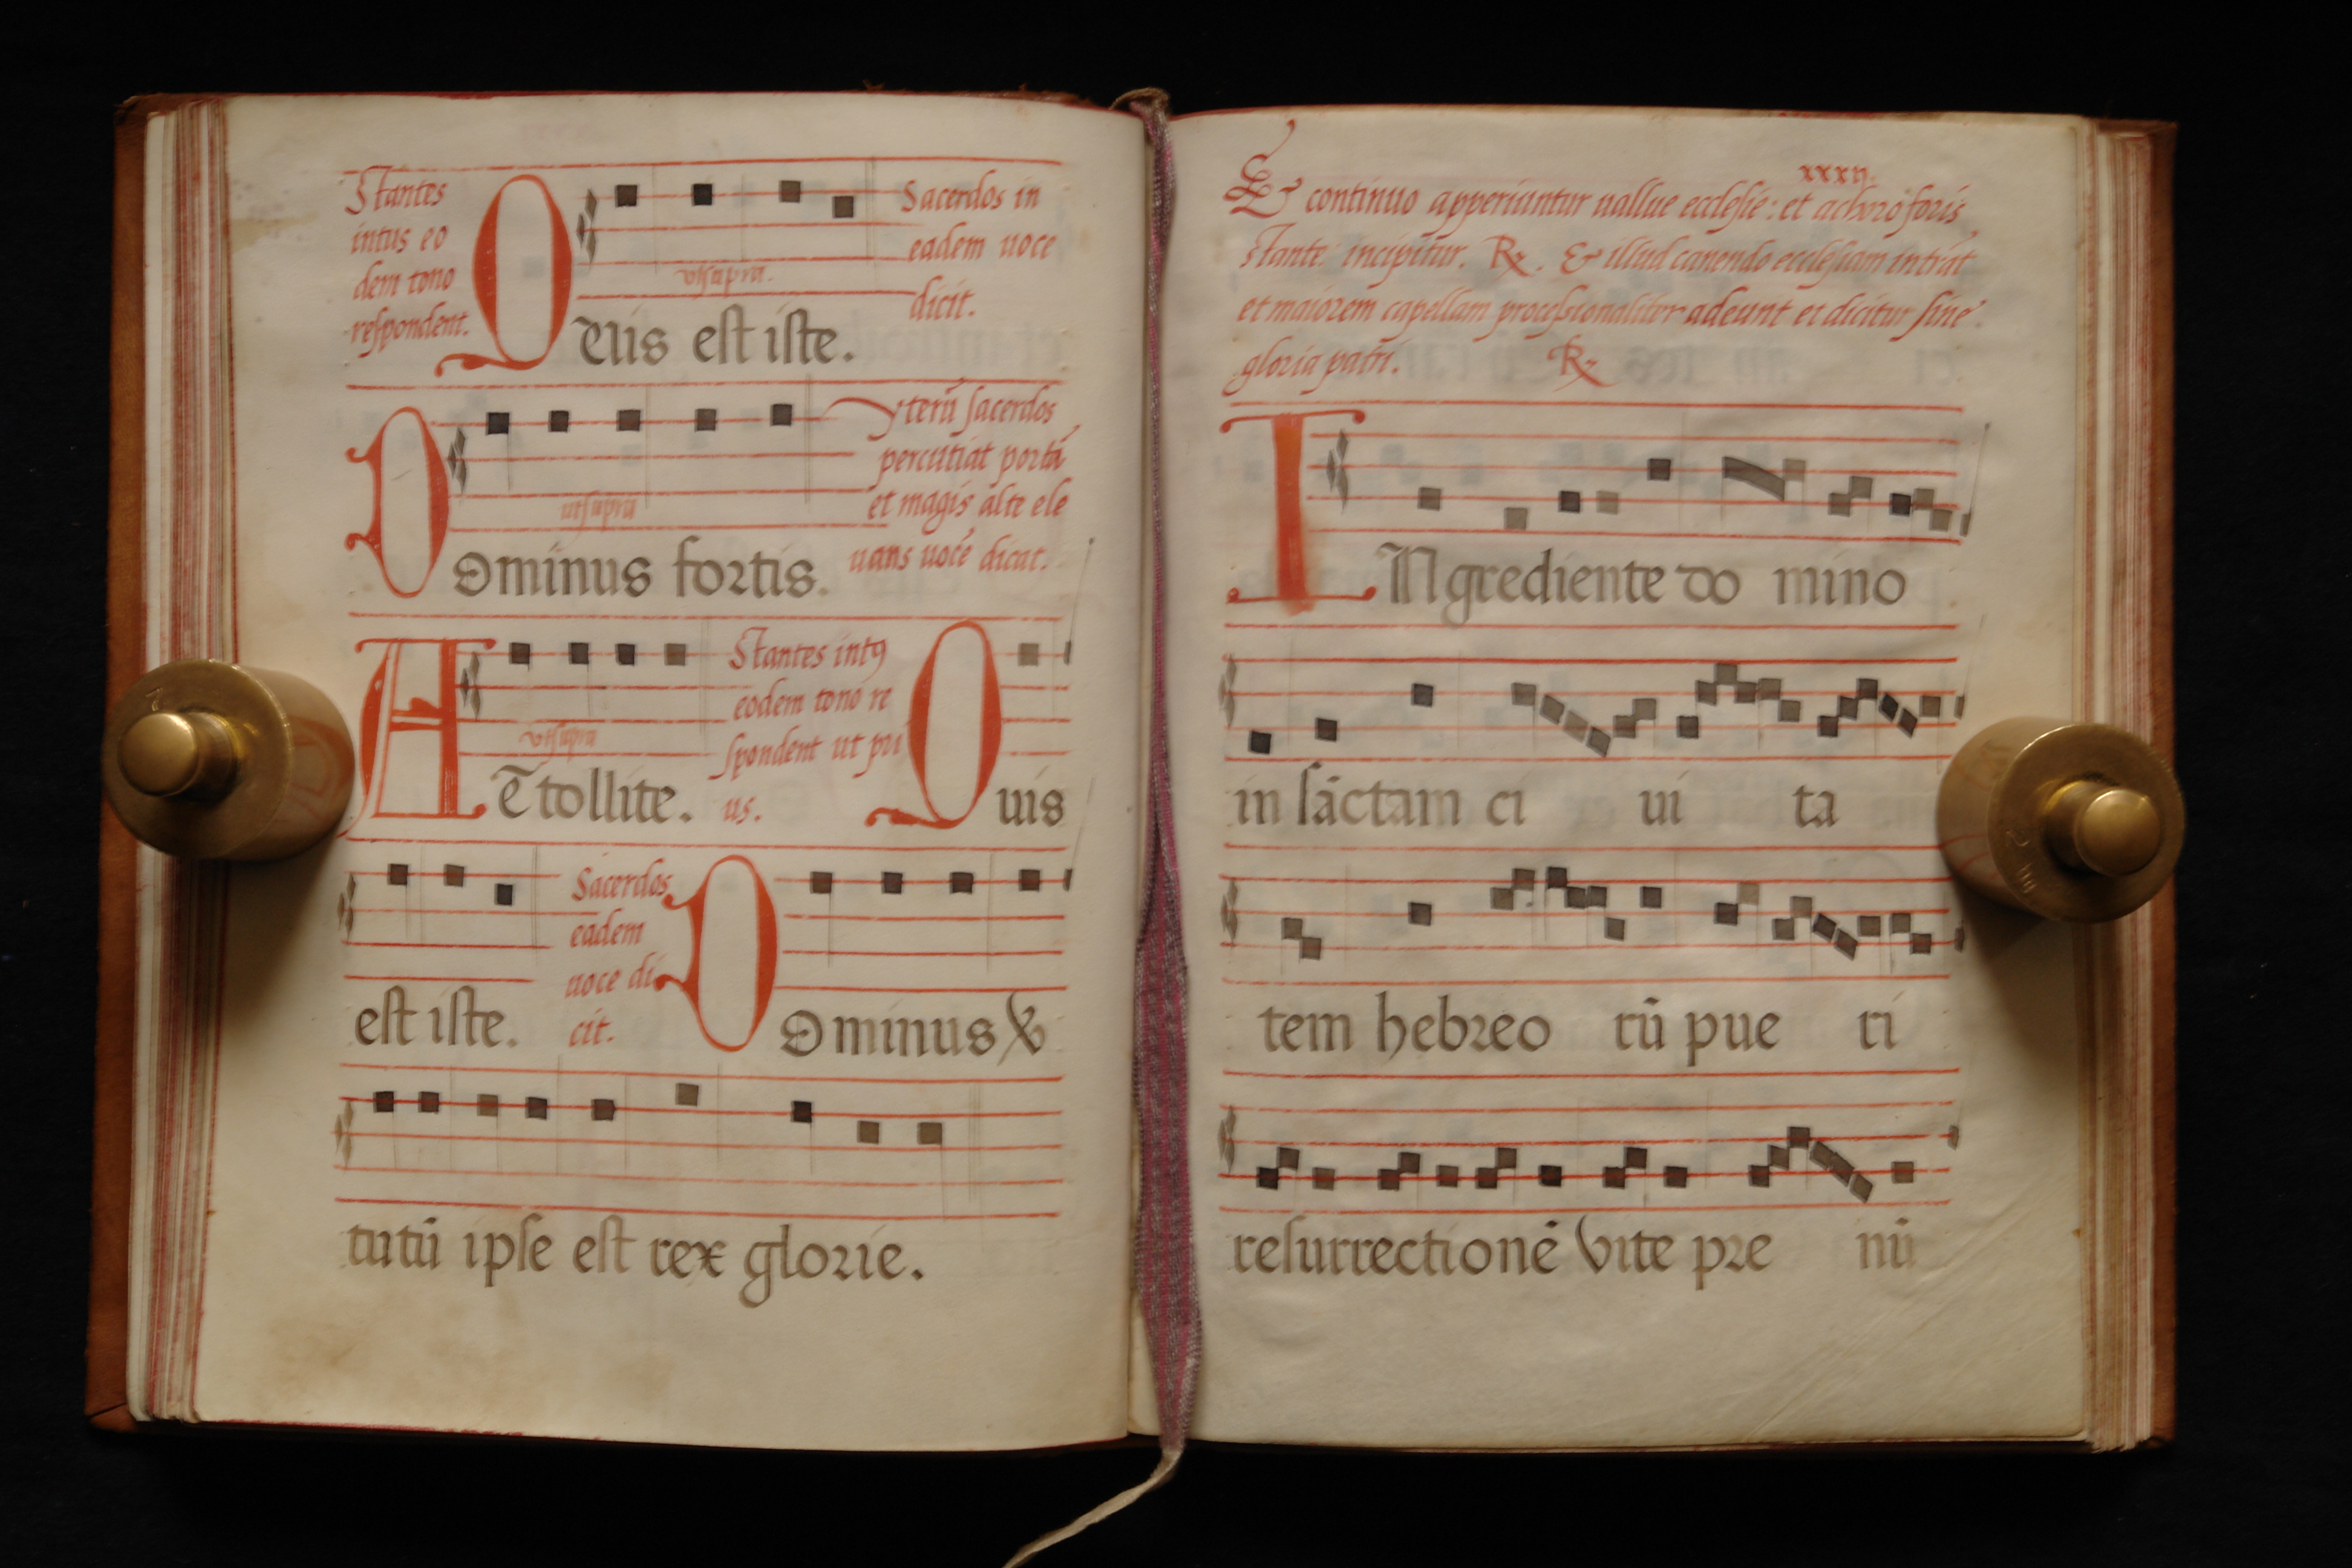 Stantes
intus eo
dem tono
respondent.
QVis est iste.
vt supra.
Sacerdos in
eadem uoce
dicit.
DOminus fortis.
ut supra
Yterū sacerdos
percutiat portā
et magis alte ele
uans uocē dicat.
AT tollite.
vt supra
Stantes intꝯ
eodem tono re
spondent ut pri
us.
Quis
est iste.
Sacerdos
eadem
uoce di
cit.
DOminus v̉
tutū ipse est rex glorie.
xxxij.
Et continuo apperiuntur uallue ecclesie: et achoro foris
stante incipitur. R⁊. & illud canendo ecclesiam intrāt
et maiorem capellam processionaliter adeunt et dicitur sine
gloria patri. R⁊
INgrediente do mino
in sāctam ci ui ta
tem hebreo rū pue ri
resurrectionē vite pre nū